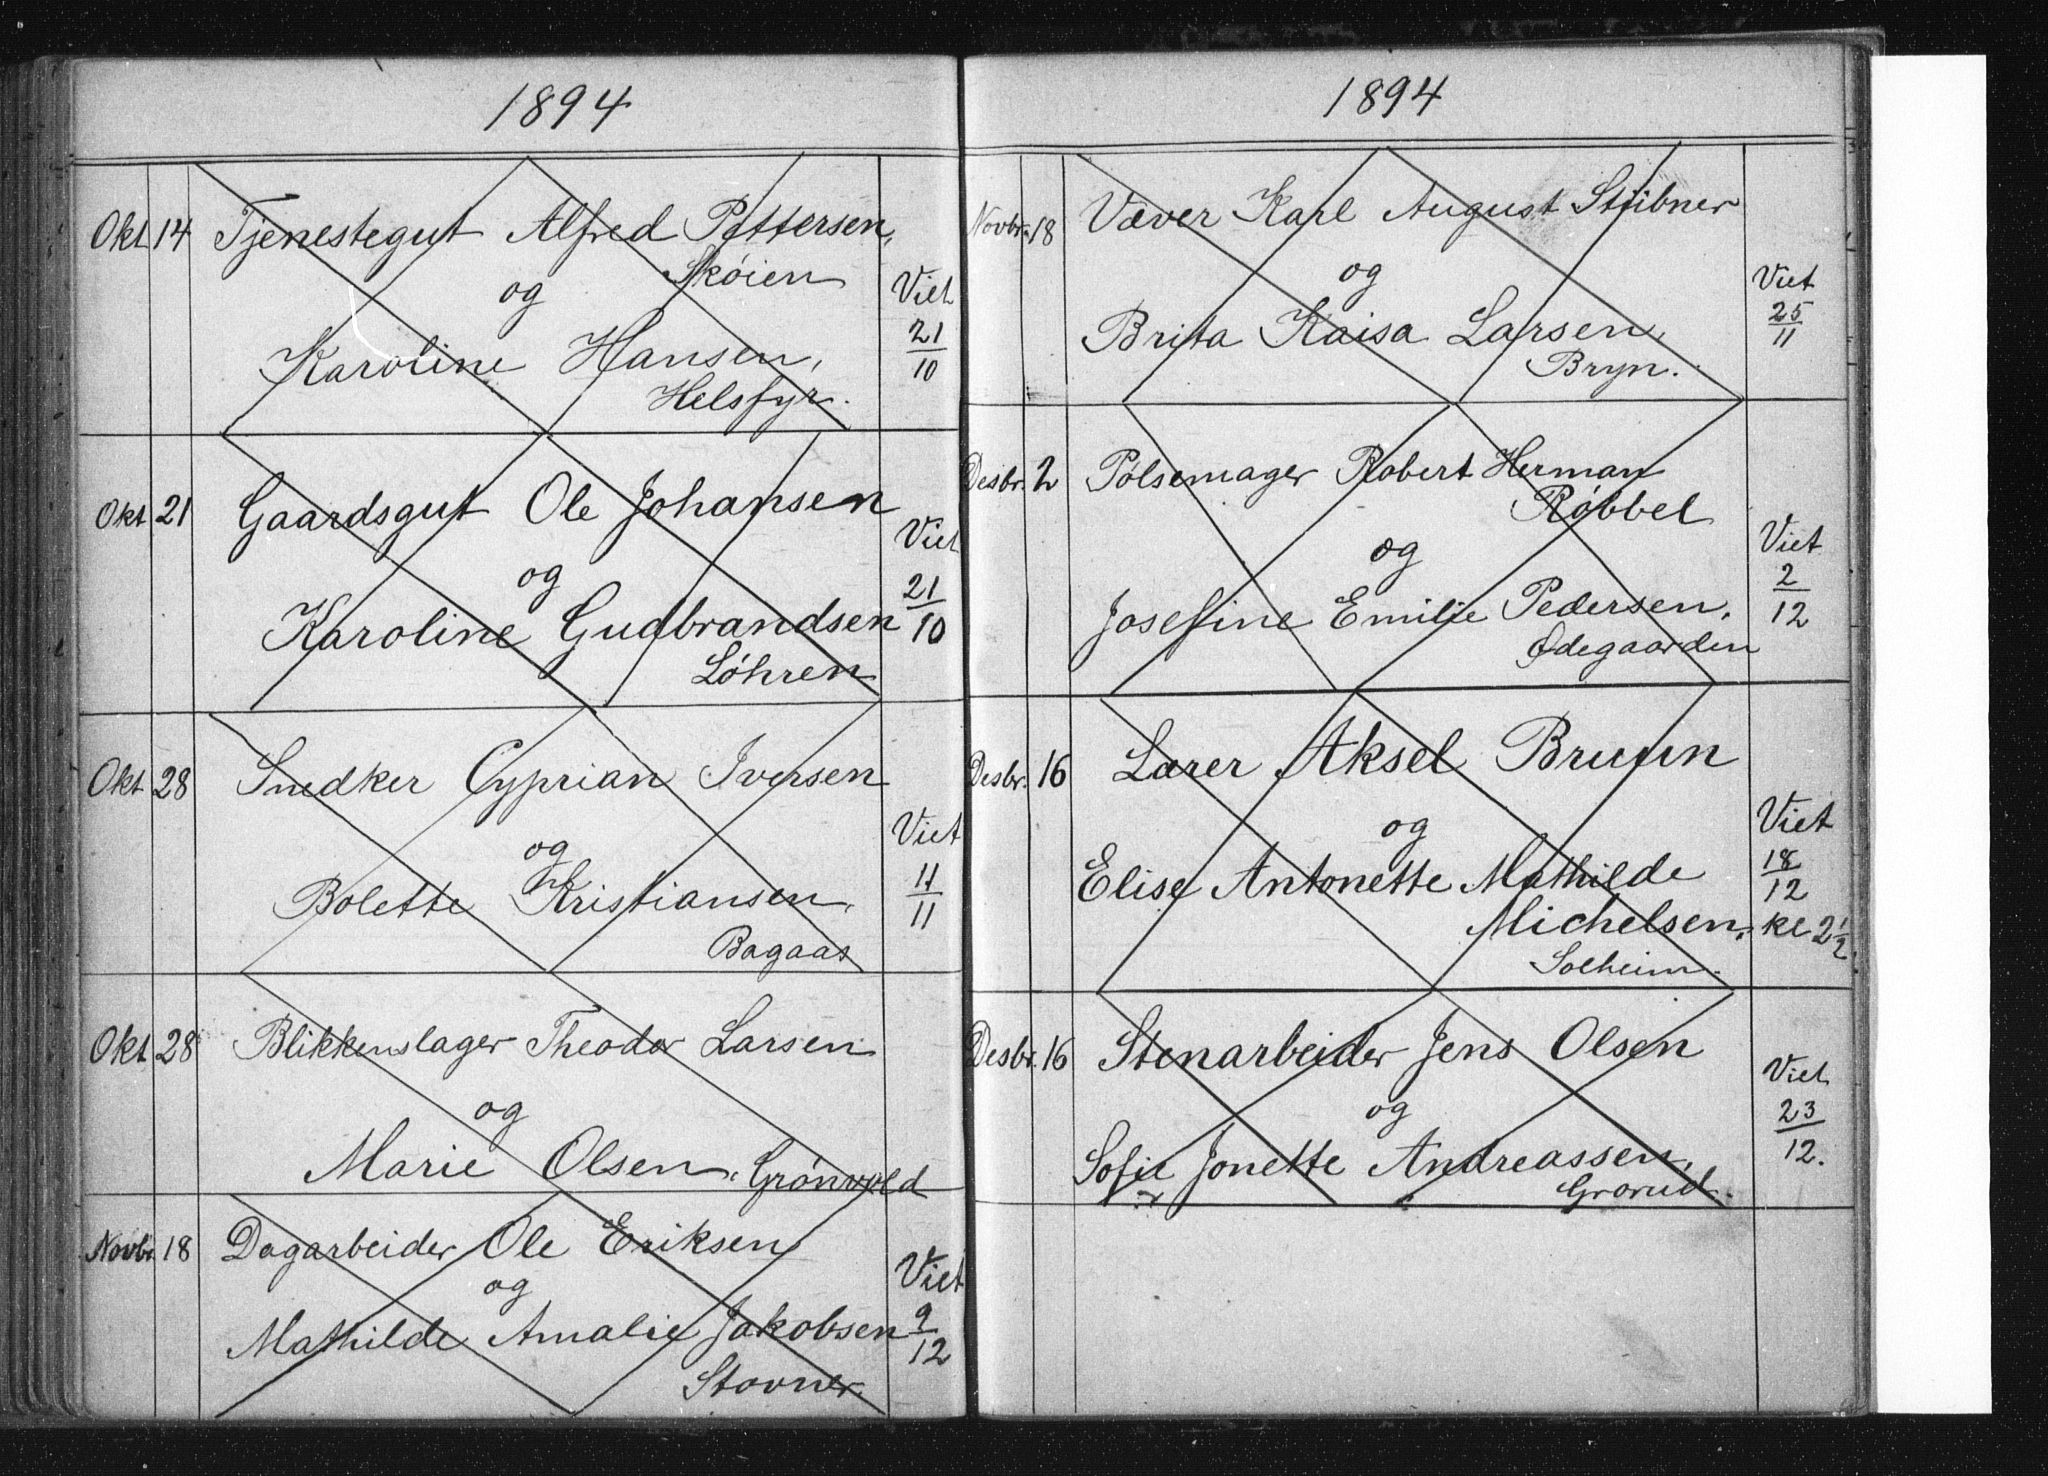 1894
Okt 14 Tjenestegut Alfred Pettersen,
Skóien
og
Viet
21/10
Karoline Hansen,
Helsfyr.
Okt 21 Gaardsgut Ole Johansen
Viet
og
21/10
Karoline Gudbrandsen
Lóhren
Okt 28 Snedker Cyprian Iversen
Viet
og
11/11
Bolette Kristiansen,
Bagaas
Okt 28 Blikkenslager Theodor Larsen
og
Marie Olsen, Grónvold
Novbr. 18 Dagarbeider Ole Eriksen
Viet
og
9/12
Mathilde Amalie Jakobsen
Stovner.
1894
Novbr. 18 Væver Karl August Stübner
og
Viet
25/11
Brita Kaisa Larsen,
Bryn.
Desbr. 2 Pølsemager Robert Herman
Røbbel
Viet
og
2/12
Josefine Emilie Pedersen,
Ødegaarden
Desbr. 16 Lærer Aksel Bruun
Viet
og
18/12
Elise Antonette Mathilde
Michelsen, kl 2 1/2
Solheim.
Desbr. 16 Stenarbeider Jens Olsen
Viet
og
23/12.
Sofie Jonette Andreassen,
Grorud.